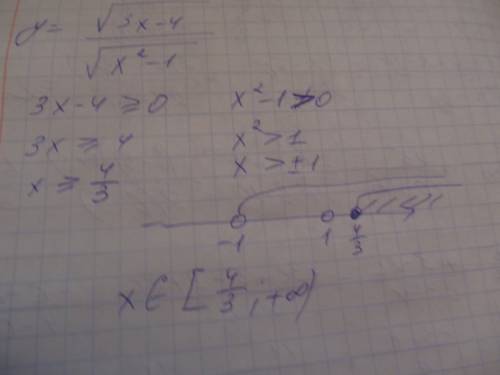 y = √(3x-4) / √(x²-1)
3x-4 ≥ 0 x²-1 > 0
3x ≥ 4 x² > 1
x ≥ 4/3 x > ±1
-1 1 4/3
x ∈ [4/3; +∞)